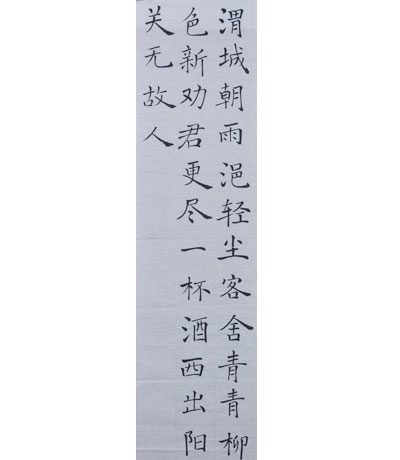 渭城朝雨浥轻尘客舍青青柳
色新劝君更尽一杯酒西出阳
关无故人